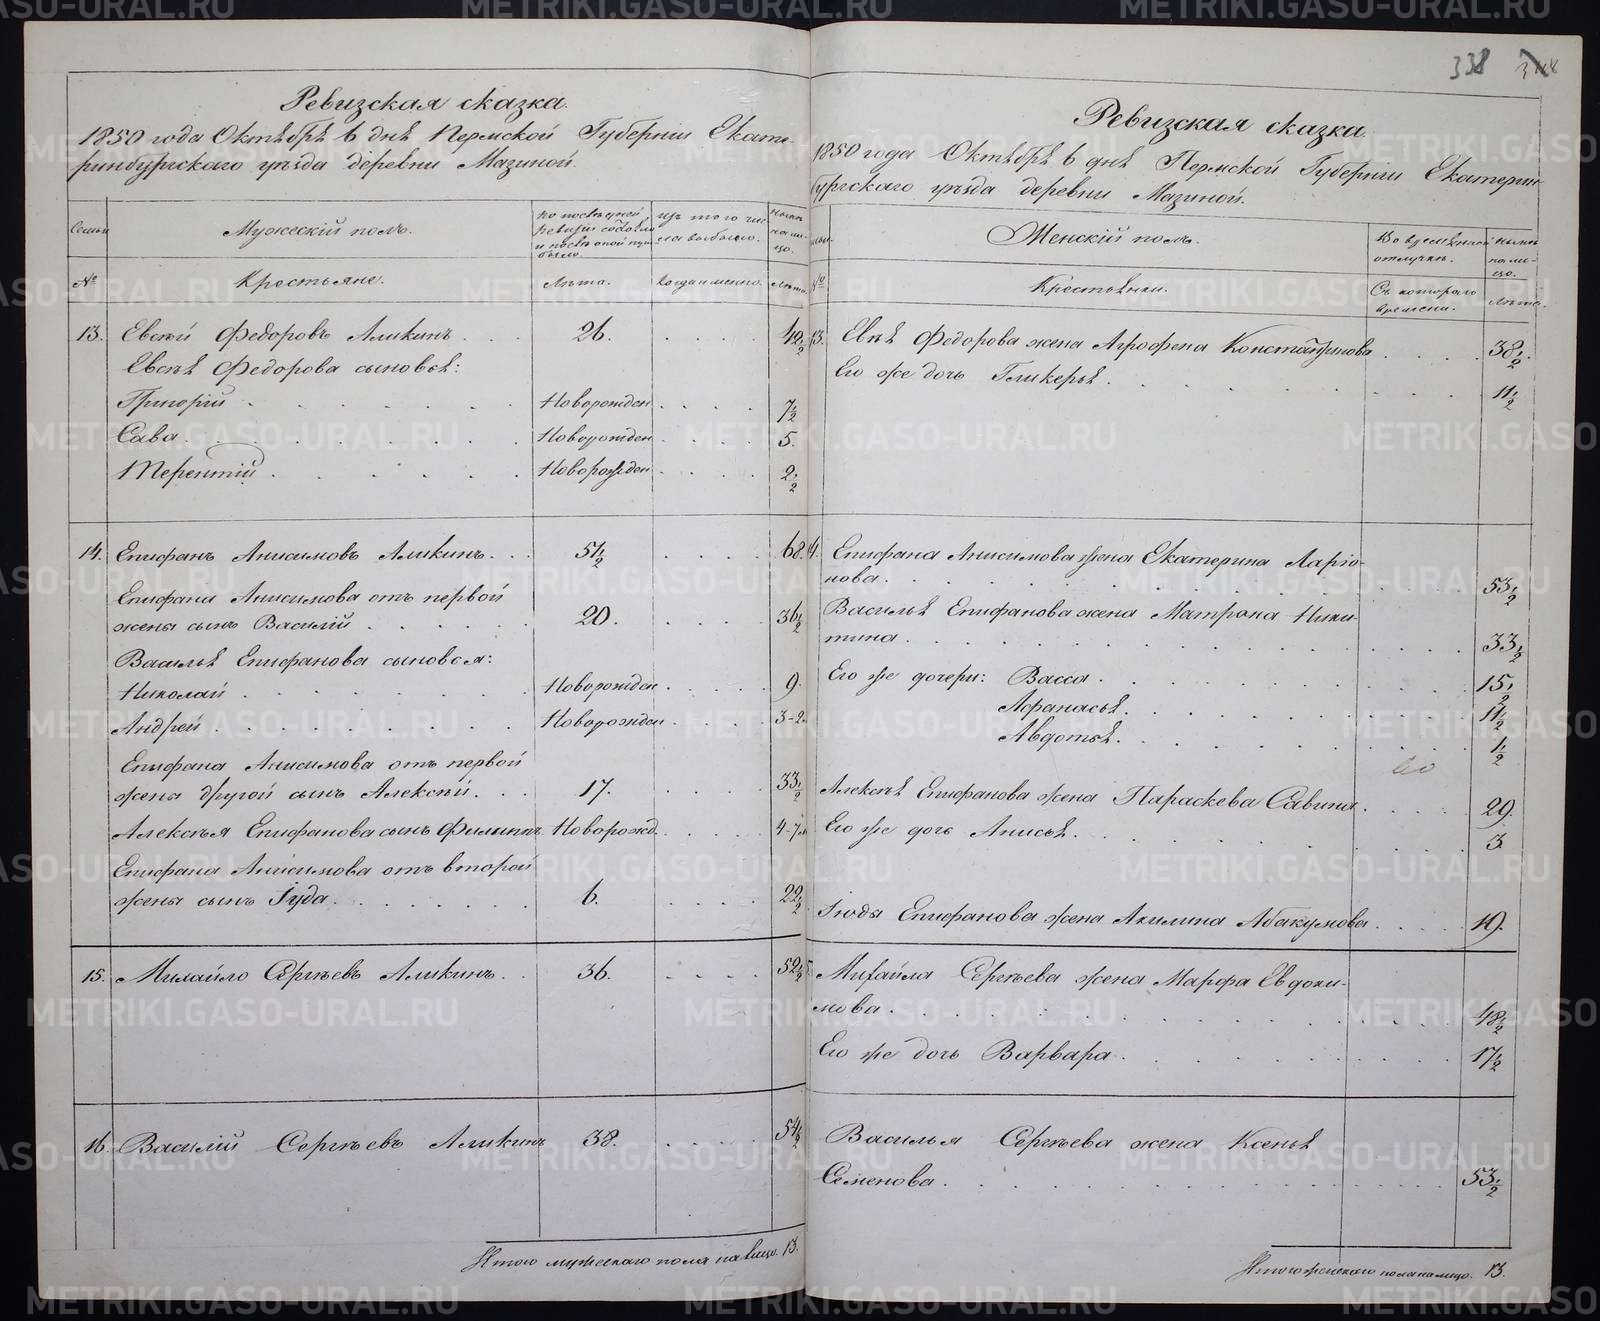 338 348
Ревизская сказка.
1850 года Октября 6 дня Пермской Губернии Екате-
ринбургского уезда деревни Мазиной.
Семьи
Мужескій полъ.
по последней
ревизіи состояло
и после оной при-
было.
изъ того чи-
сла выбыло.
ныне
на ли-
цо.
№
Крестьяне.
Лѣта.
когда именно.
Лѣта.
13. Евсѣй Федоровъ Аликинъ . . . 26. . . . . 42½
Евсѣя Федорова сыновья:
Григорій . . . . . . Новорожден . . . . 7½
Сава . . . . . . Новорожден . . . . 5.
Терентій . . . . . Новорожден . . . . 2½
14. Епифанъ Анисимовъ Аликинъ . . 51½ . . . . 68.
Епифана Анисимова отъ первой
жены сынъ Василій . . . . . 20. . . . . 36½
Василья Епифанова сыновья:
Николай . . . . . . Новорожден . . . . 9.
Андрей . . . . . . Новорожден . . . . 3-2м
Епифана Анисимова отъ первой
жены другой сынъ Алексѣй . . . 17. . . . . 33½
Алексѣя Епифанова сынъ Филиппъ Новорожд. . . . . 4-7м
Епифана Анисимова отъ второй
жены сынъ Іуда . . . . . . 6. . . . . 22½
15. Михайло Сергѣевъ Аликинъ . . 36. . . . . 52½
16. Василій Сергѣевъ Аликинъ 38. . . . . 54½
Итого мужескаго пола на лицо. 13.
Ревизская сказка
1850 года Октября 6 дня Пермской Губерніи Екатерин-
бургскаго уѣзда деревни Мазиной.
Семьи.
Женскій полъ.
Во временной
отлучкѣ.
ныне
на ли-
цо.
№
Крестьянки.
Съ котораго
времени.
Лѣта.
13. Евсѣя Федорова жена Агрофена Константинова . . . . 38½.
Его же дочь Гликерья . . . . . . . . 11½
14. Епифана Анисимова жена Екатерина Ларіо-
нова . . . . . . . . . . 53½
Василья Епифанова жена Матрона Ники-
тина . . . . . . . . . . 33½
Его же дочери: Васса . . . . . . . . 15½
Афанасья . . . . . . . . 11½
Авдотья . . . . . . . . ½
Алексѣя Епифанова жена Параскева Савина . . . . 29.
Его же дочь Анисья . . . . . . . . 3
Іюды Епифанова жена Акилина Абакумова . . . . . 19.
15. Михайла Сергѣева жена Марфа Евдоки-
мова . . . . . . . . . . 48½
Его же дочь Варвара . . . . . . . . 17½
Василья Сергѣева жена Ксенья
Семенова . . . . . . . . . . 53½
Итого женскаго пола на лицо. 13.
METRIKI.GASO-URAL.RU